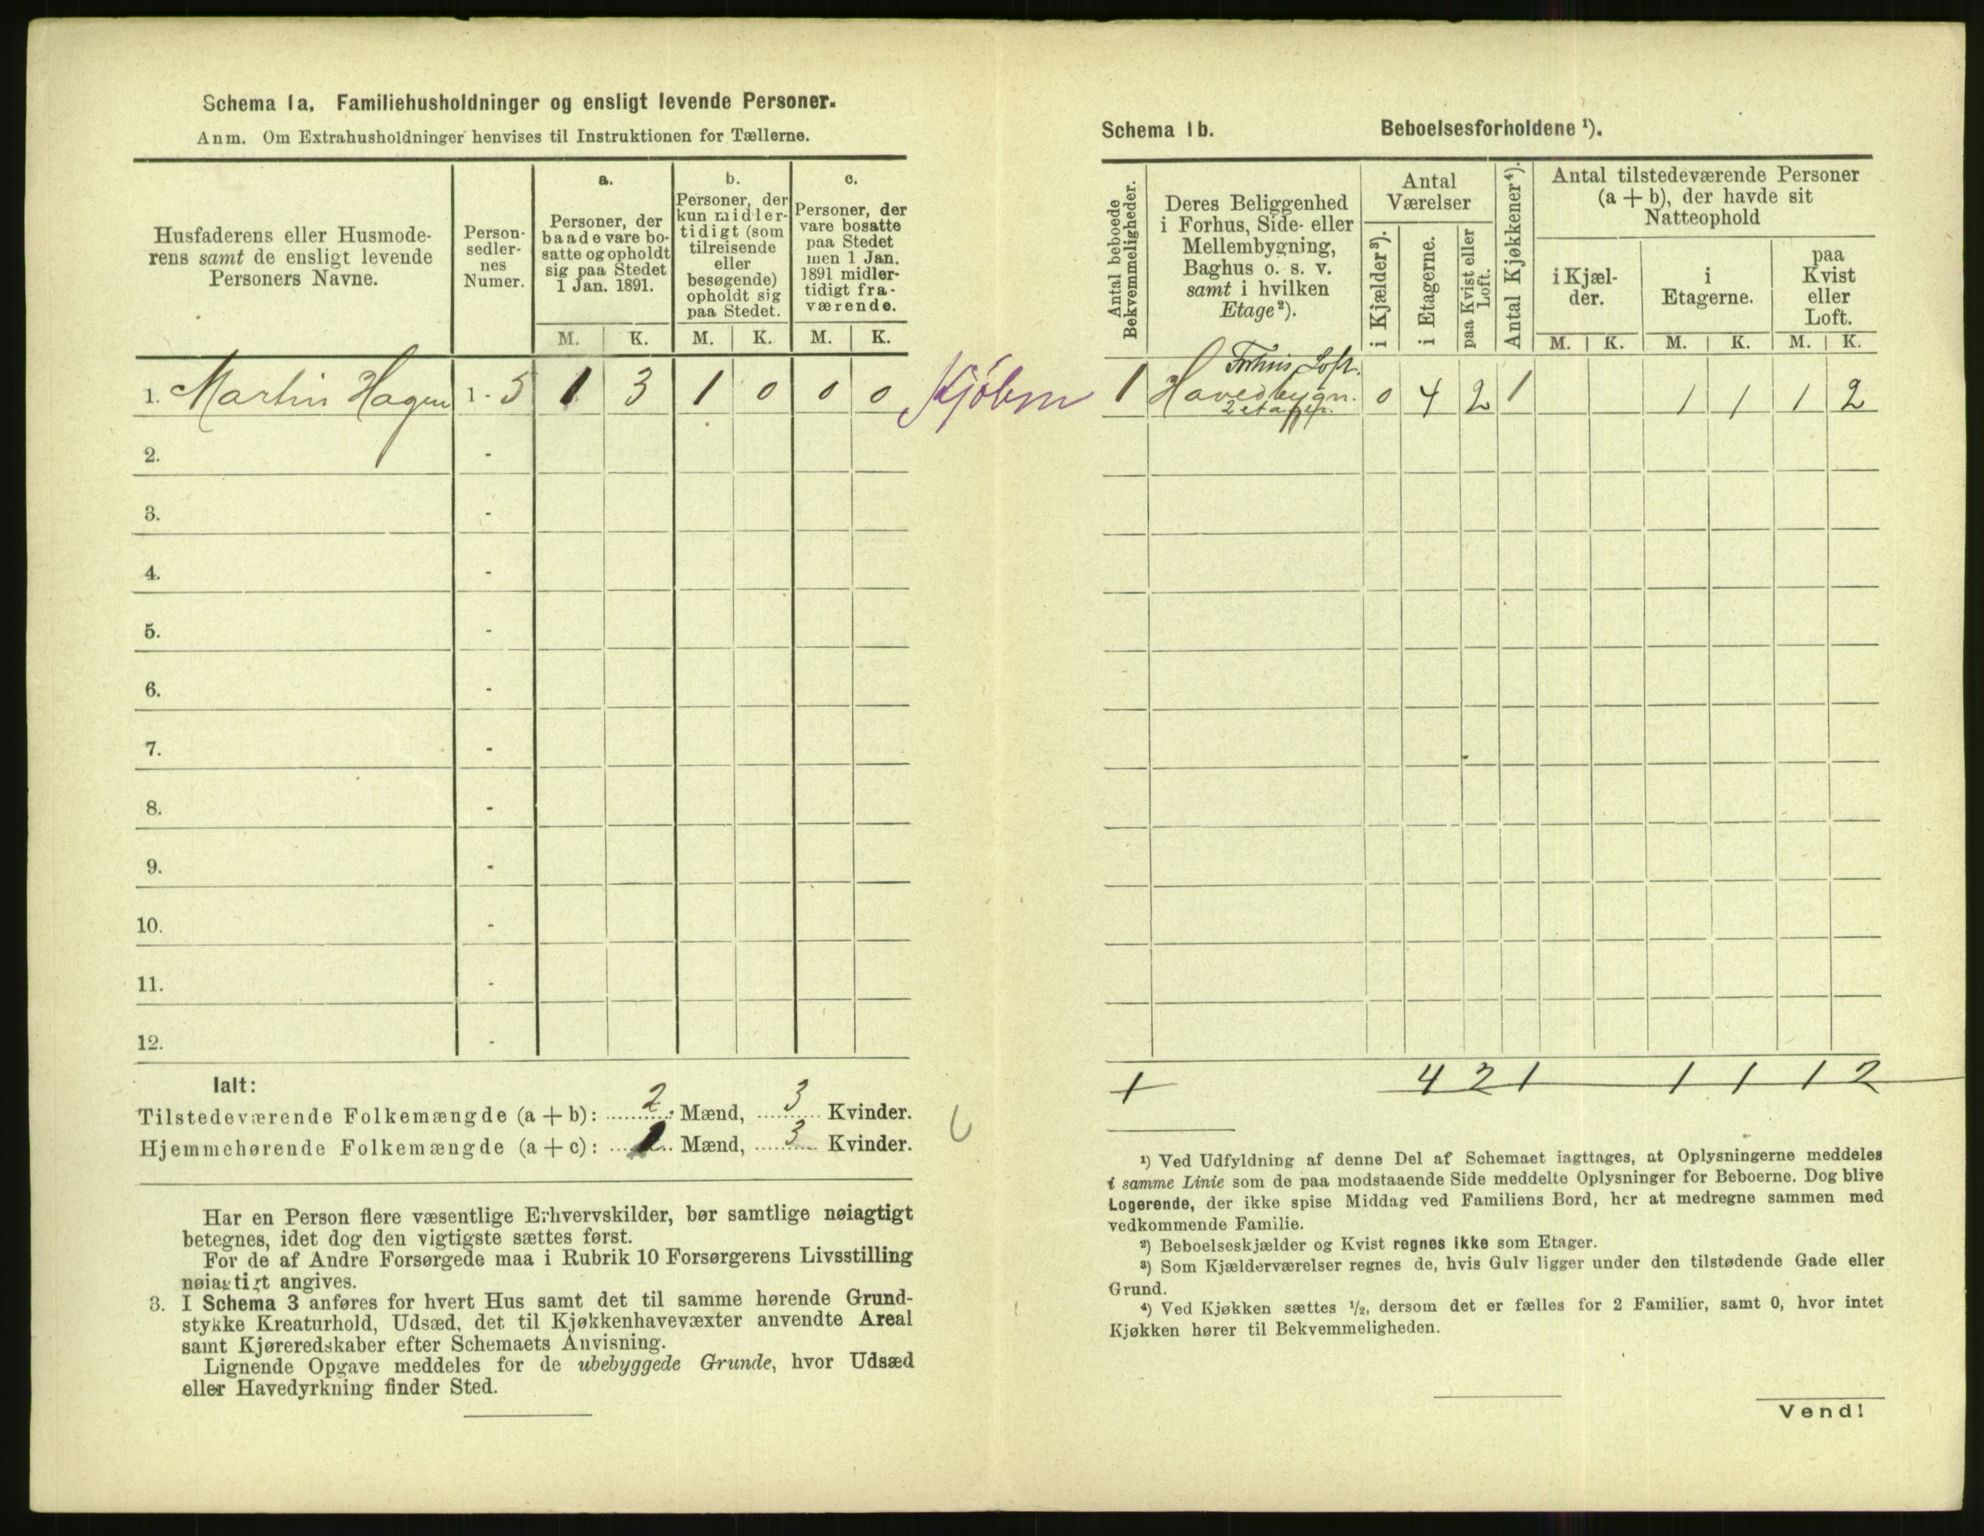 Schema 1a. Familiehusholdninger og ensligt levende Personer.
Anm. Om Extrahusholdninger henvises til Instruktionen for Tællerne.
Husfaderens eller Husmode-
rens samt de ensligt levende
Personers Navne.
Person-
sedler-
nes
Numer.
a.
Personer, der
baade vare bo-
satte og opholdt
sig paa Stedet
1 Jan. 1891.
b.
Personer, der
kun midler-
tidigt (som
tilreisende
eller
besøgende)
opholdt sig
paa Stedet.
c.
Personer, der
vare bosatte
paa Stedet
men 1 Jan.
1891 midler-
tidigt fra-
værende.
M. K. M. K. M. K.
1. Martin Hagen 1 - 5 1 3 1 0 0 0
2. -
3. -
4. -
5. -
6. -
7. -
8. -
9. -
10. -
11. -
12. -
Ialt:
Tilstedeværende Folkemængde (a + b): 2 Mænd, 3 Kvinder.
Hjemmehørende Folkemængde (a + c): 1 Mænd, 3 Kvinder.
Har en Person flere væsentlige Erhvervskilder, bør samtlige nøiagtigt
betegnes, idet dog den vigtigste sættes først.
For de af Andre Forsørgede maa i Rubrik 10 Forsørgerens Livsstilling
nøiagtigt angives.
3. I Schema 3 anføres for hvert Hus samt det til samme hørende Grund-
stykke Kreaturhold, Udsæd, det til Kjøkkenhavevæxter anvendte Areal
samt Kjøreredskaber efter Schemaets Anvisning.
Lignende Opgave meddeles for de ubebyggede Grunde, hvor Udsæd
eller Havedyrkning finder Sted.
Schema 1b. Beboelsesforholdene ¹).
Antal beboede
Bekvemmeligheder.
Deres Beliggenhed
i Forhus, Side- eller
Mellembygning,
Baghus o. s. v.
samt i hvilken
Etage²).
Antal
Værelser
i Kjælder³).
i Etagerne.
paa Kvist eller
Loft.
Antal Kjøkkener⁴).
Antal tilstedeværende Personer
(a + b), der havde sit
Natteophold
i Kjæl-
der.
i
Etagerne.
paa
Kvist
eller
Loft.
M. K. M. K. M. K.
Forhus Loft.
1 Hovedbygn. 0 4 2 1 1 1 1 2
2 etager.
1 4 2 1 1 1 1 2
¹) Ved Udfyldning af denne Del af Schemaet iagttages, at Oplysningerne meddeles
i samme Linie som de paa modstaaende Side meddelte Oplysninger for Beboerne. Dog blive
Logerende, der ikke spise Middag ved Familiens Bord, her at medregne sammen med
vedkommende Familie.
²) Beboelseskjælder og Kvist regnes ikke som Etager.
³) Som Kjælderværelser regnes de, hvis Gulv ligger under den tilstødende Gade eller
Grund.
⁴) Ved Kjøkken sættes ½, dersom det er fælles for 2 Familier, samt 0, hvor intet
Kjøkken hører til Bekvemmeligheden.
Vend!